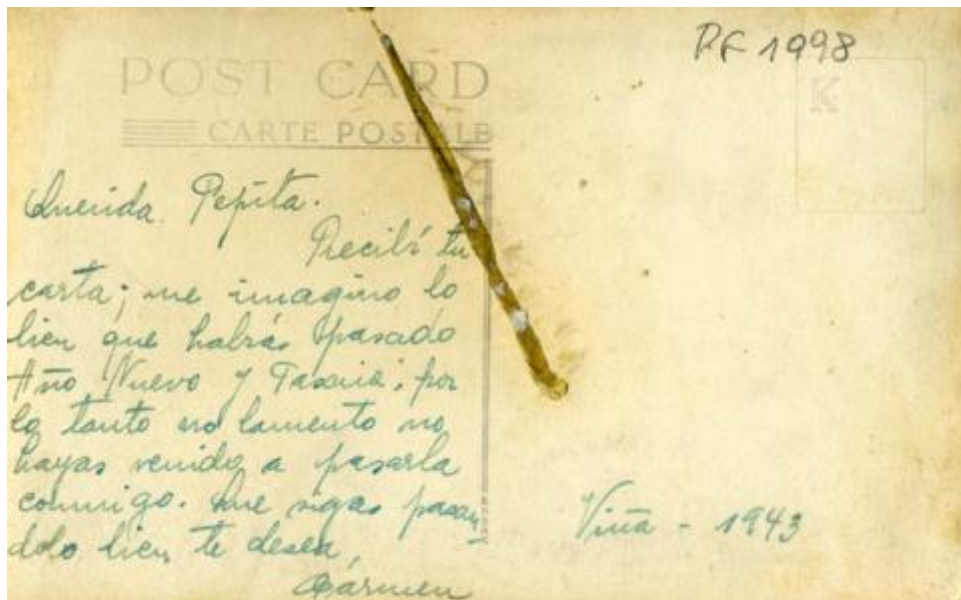 POST CARD
CARTE POSTALE
PF 1998
K
Querida Pepita.
Recibí tu
carta; me imagino lo
bien que habrás pasado
Año Nuevo y Pascua; por
lo tanto no lamento no
hayas venido a pasarla
conmigo. Que sigas pasan-
dolo bien, te desea,
Cármen
Viña - 1943